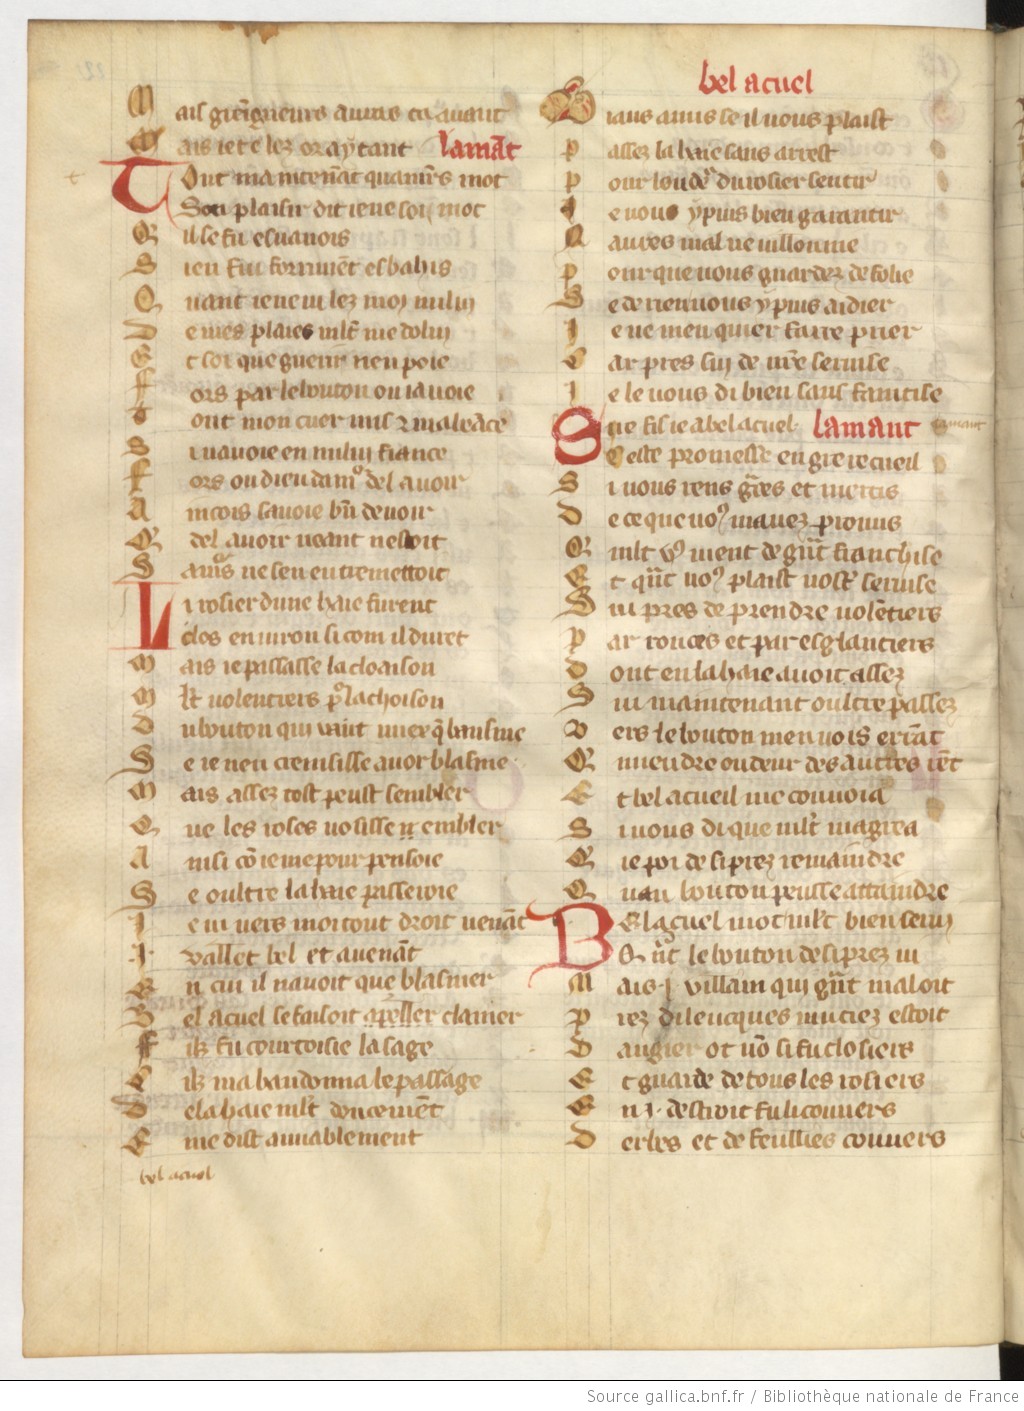 M ais greigneurs auras ca auant
M ais iete lez or aytant lamāt
Tout maintenāt quamrs mot
Son plaisir dit ie ne soy mot
Q il se fu esuanois
S ien fui forment esbahis
Q uant ie ne ui lez moy nuluy
D e mes plaies mlt me doluy
E t soi que guerir nen poie
F ors par le bouton ou iauoie
T out mon cuer mis z ma beāce
S i nauoie en nuluy fiance
F ors ou dieu damꝰ del auoir
A incois sauoie bn̄ de uoir
Q del auoir neant nestoit
S amꝰs ne sen entremettoit
Li rosier dune haie furent
clos enuiron si com il durēt
M ais ie passasse la cloaison
M lt uolentiers pꝰ lachoison
D u bouton qui vaut miex q̄ bausme
S e ie nen cremsisse auor blasme
M ais assez tost peust sembler
Q ue les roses uosisse embler
A insi cō ie me pour pensoie
S e oultre la haie passeroie
I e ui uers moi tout droit uenāt
·I· vallet bel et auenāt
E n cui il nauoit que blasmer
B el acuel se faisoit apeller clamer
F ilz fu courtoisie la sage
C ilz mabandonna le passage
D e la haie mlt doucemēt
E t me dist amiablement
bel acuel
bel acuel
B iaus amis se il uous plaist
P assez la haie sans arrest
P our loudꝰ du rosier sentir
I e uous y puis bien garantir
N aures mal ne uillonnie
P our que uous guardez de folie
S e de rien uous y puis aidier
I e ne men quier faire prier
C ar pres sui de urē seruise
I e le uous di bien sans faintise
Sire fis ie a bel acuel lamant lamant
Ceste promesse en gre recueil
S i uous rens grēs et mercis
D e ce que uoꝰ mauez promis
Q mlt vꝰ uient de grāt franchise
E t quāt uoꝰ plaist uostꝰ seruise
S ui pres de prendre uolētiers
P ar ronces et par esglantiers
D ont en la haie auoit assez
S ui maintenant oultre passez
V ers le bouton men uois errāt
Q mieudre oudeur des autres rēt
E t bel acueil me conuoia
S i uous di que mlt magrea
Q ie poi de si prez remaindre
Q uau bouton peusse attaindre
Bel acuel mot mlt bien serui
Quāt le bouton de si prez ui
M ais ·I· villain qui grāt mal oit
P rez dilencques muciez estoit
D angier ot nō si fu closiers
E t guarde de tous les rosiers
E n ·I· destroit fu li couuers
D erbes et de feullies couuers
Source gallica.bnf.fr / Bibliothèque nationale de France